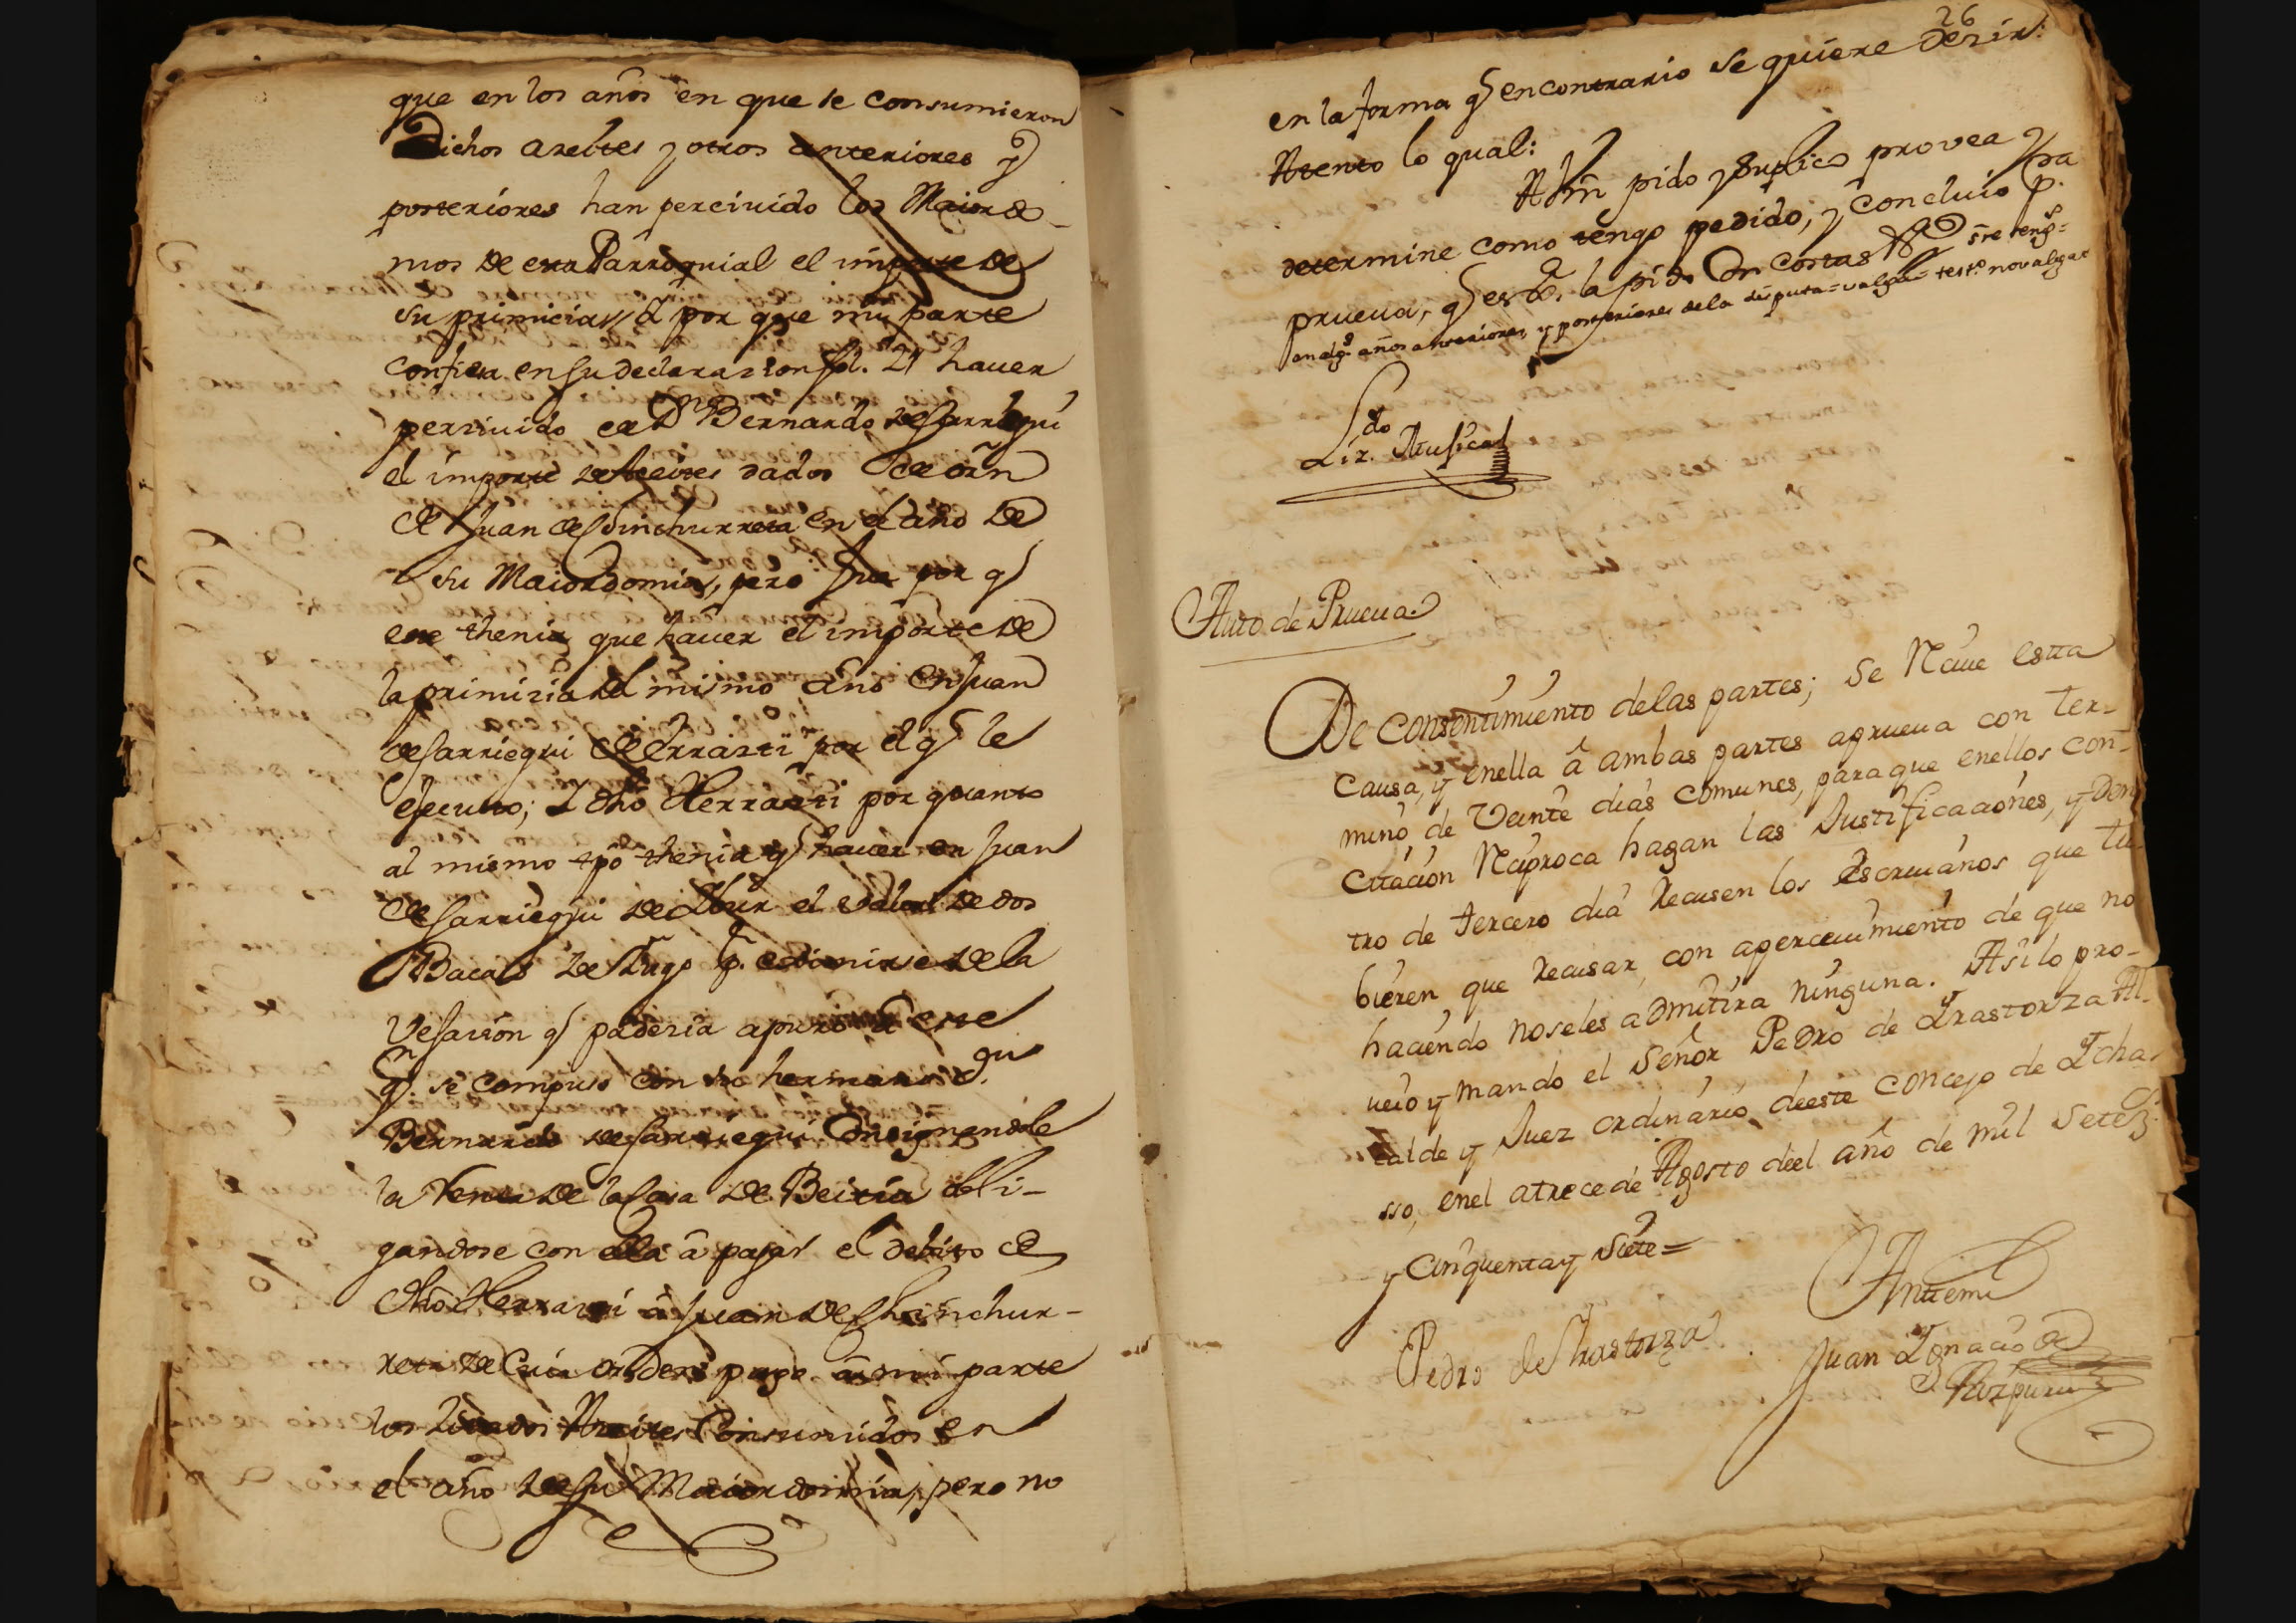 que en los años en que se consumieron
Dichos azeites y otros anteriores y
posteriores han percivido los Maiordo-
mos de esta Parroquial el importe de
su primicias, y por que mi parte
confiesa en su declarazion fol. 21 haver
perzivido de Dn Bernardo de Sarriegui
el importe de Azeites dados de orn
de Juan de Chinchurreta en el año de
su Maiordomia, pero fue por q
ese thenia que haver el importe de
la primizia del mismo año en Juan
de Sarriegui de Errazti por el q le
ejecuto; y dho Herrazti por quanto
al mismo tpo thenia q haver en Juan
de Sarriegui de el valor de dos
Bacas de Iugo p. redimirse de la
Vejazion q padezia apuro a este
qn. se compuso con su hermano dn
Bernardo de Sarriegui Consignandole
la renta de la Casa de Beitia obli-
gandose con ella a pagar el debito de
dho Herrazti a Juan de Chinchur-
reta de Cuia orden pago a mi parte
los Azeites Consumidos en
el año de su Maiordomia, pero no
26
en la forma q en contrario se quiere dezir:
Atento lo qual:
A Vm pido y suplico provea y
determine como tengo pedido, y concluio pa
prueva, q es Jta. la pido Con Costas &a
en alg.s años anteriores, y posteriores de la disputa = valga = test.o no valga
Lizdo. Musical
Auto de Prueva
De consentimiento de las partes; se Reciue esta
Causa, y en ella â ambas partes a prueua con ter-
mino de Veinte dias comunes, para que en ellos con
Citacion Reciproca hagan las Justificaciones, y den
tro de tercero dia recusen los Escriuanos que tu
bieren que recusar, con aperceuimiento de que no
haciendo no seles admitira ninguna. Asi lo pro-
ueio y mando el Señor Pedro de Irastorza Al-
calde y Juez ordinario de este concejo de Ichas
so, en el a trece de Agosto de el año de mil Setez.s
y Cinquenta y Siete =
Antemi
Pedro de Irastorza
Juan Ignacio de